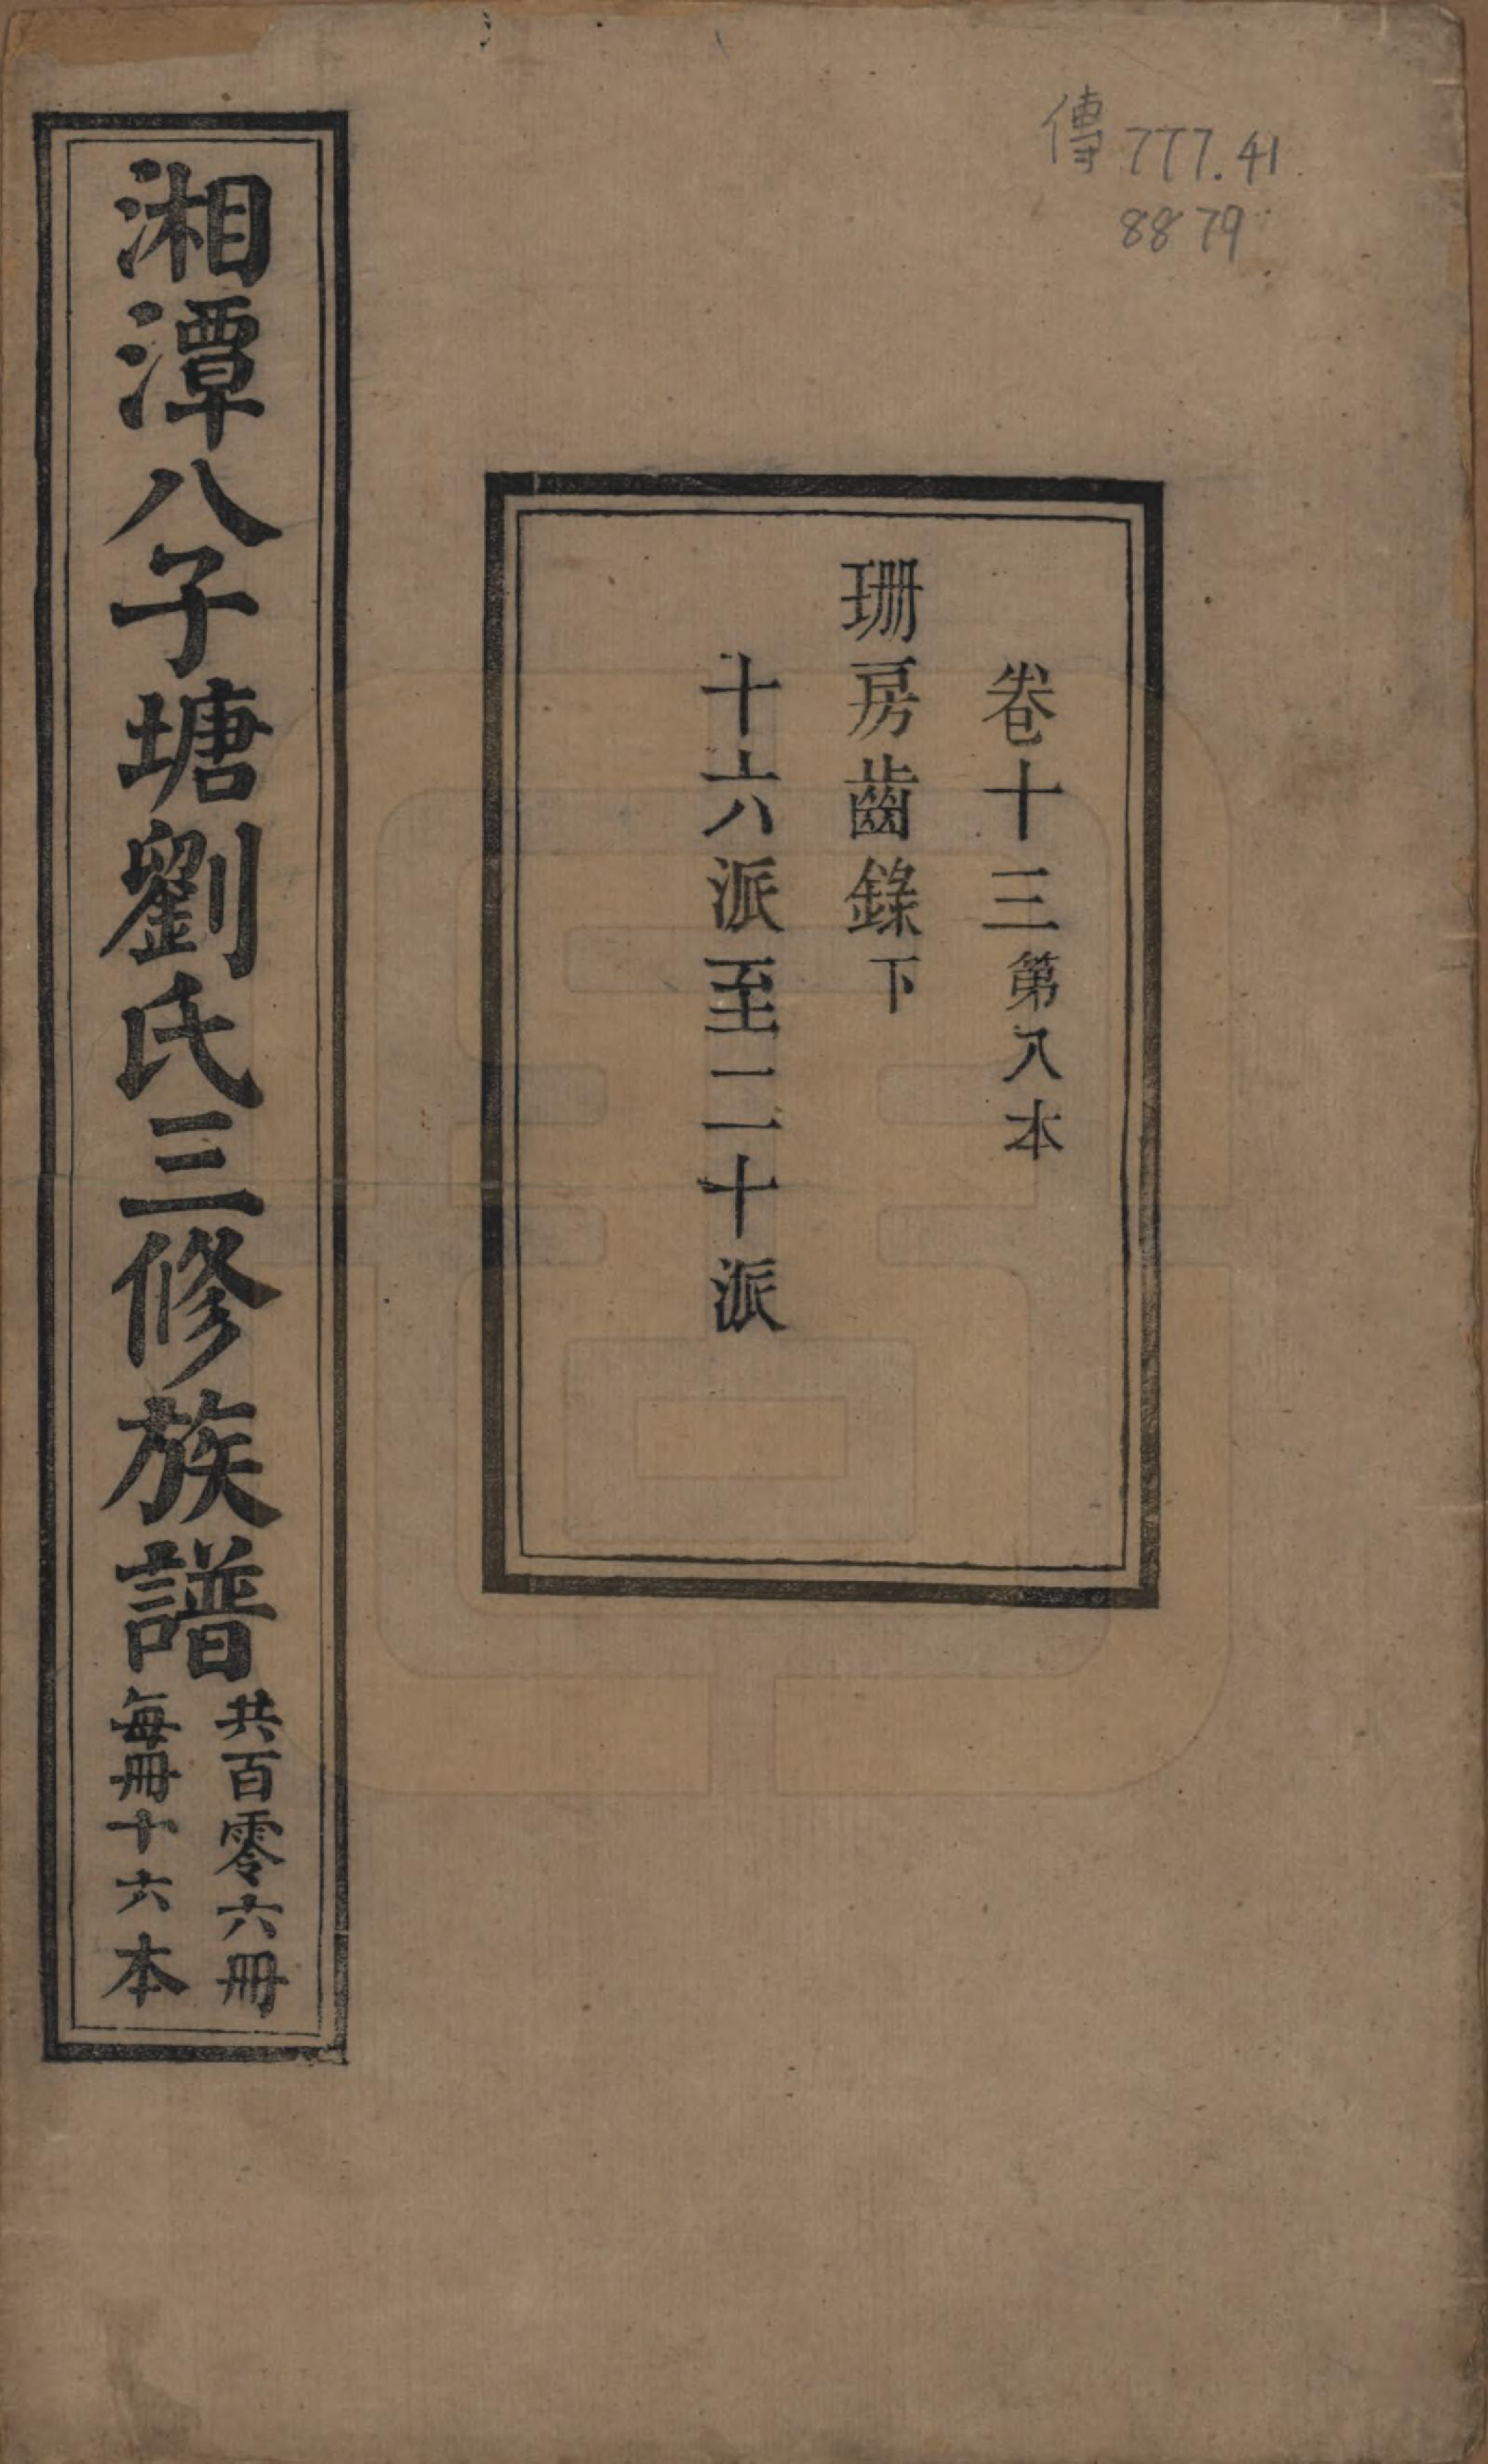 傳 777.41
8879
卷十三第八本
珊房齒錄下
十六派至二十派
湘潭八子塘劉氏三修族譜
共百零六冊
每冊十六本